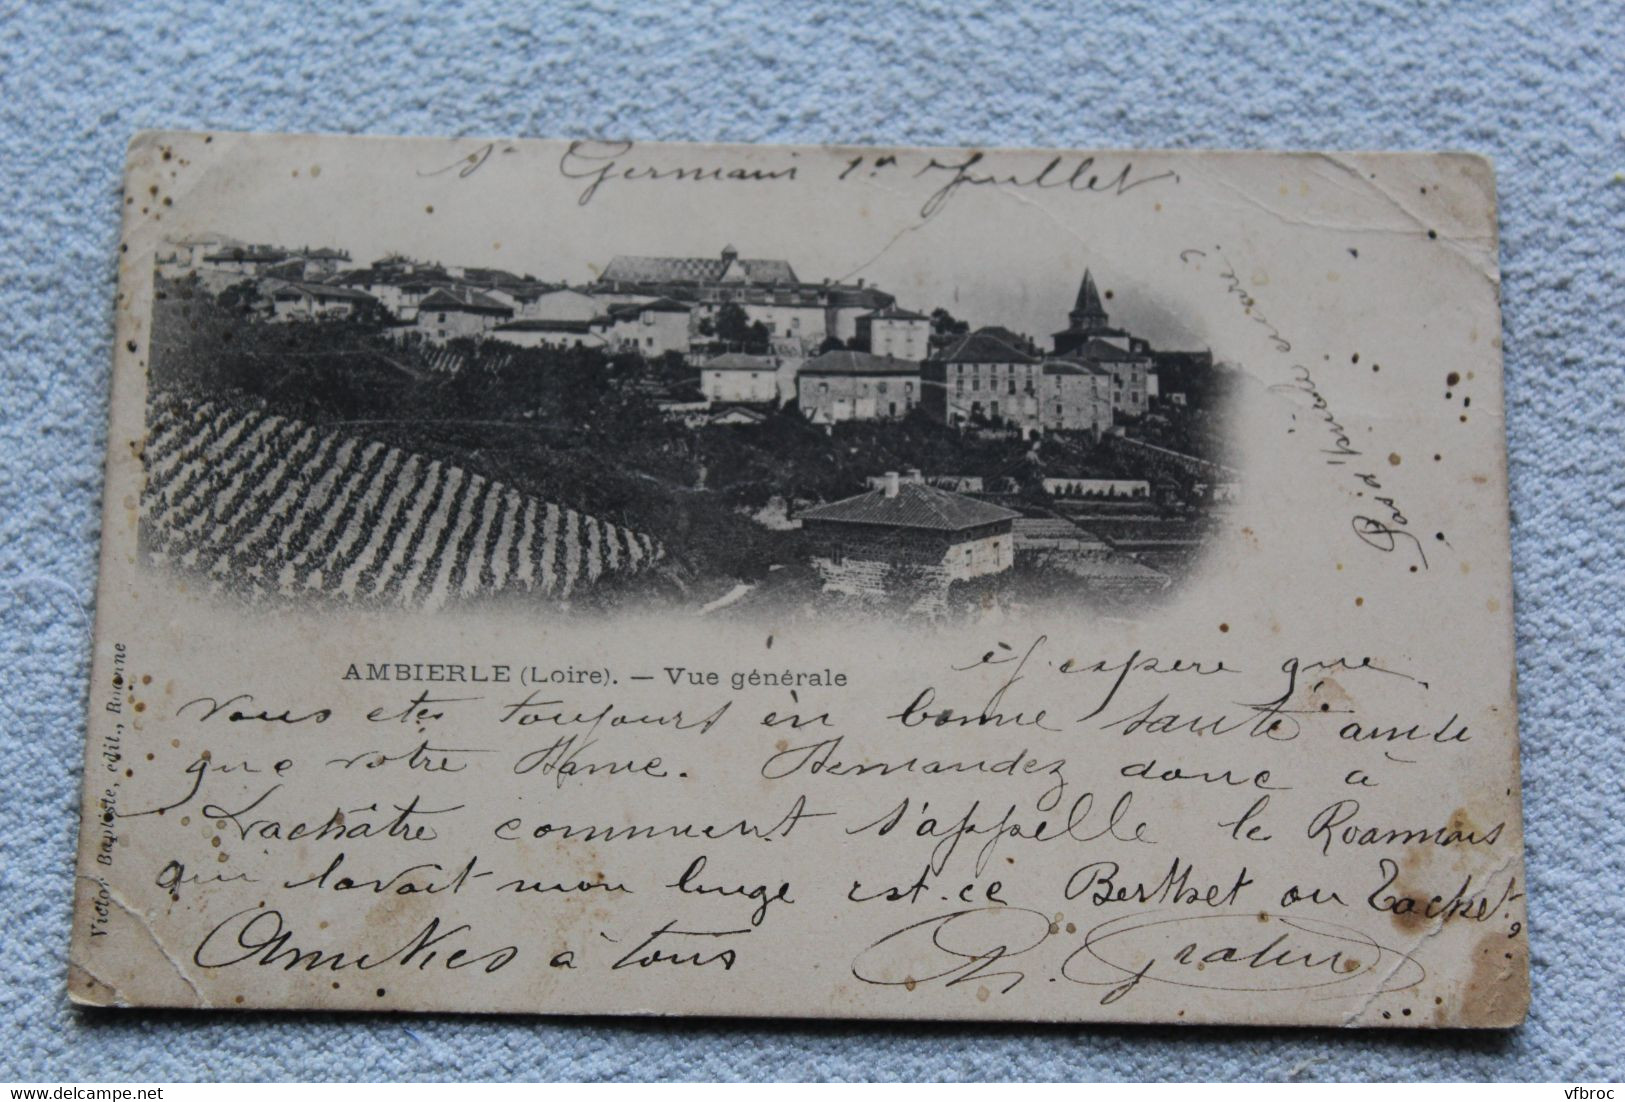 St Germain 1er Juillet
AMBIERLE (Loire). — Vue générale
Victor Baptiste, édit., Roanne
et j'espère que
vous etes toujours en bonne santé ainsi
que votre Dame. Demandez donc à
Lachâtre comment s'appelle le Roannais
qui lavait mon linge est-ce Berthet ou Tachet ?
Amitiés à tous
vfbroc